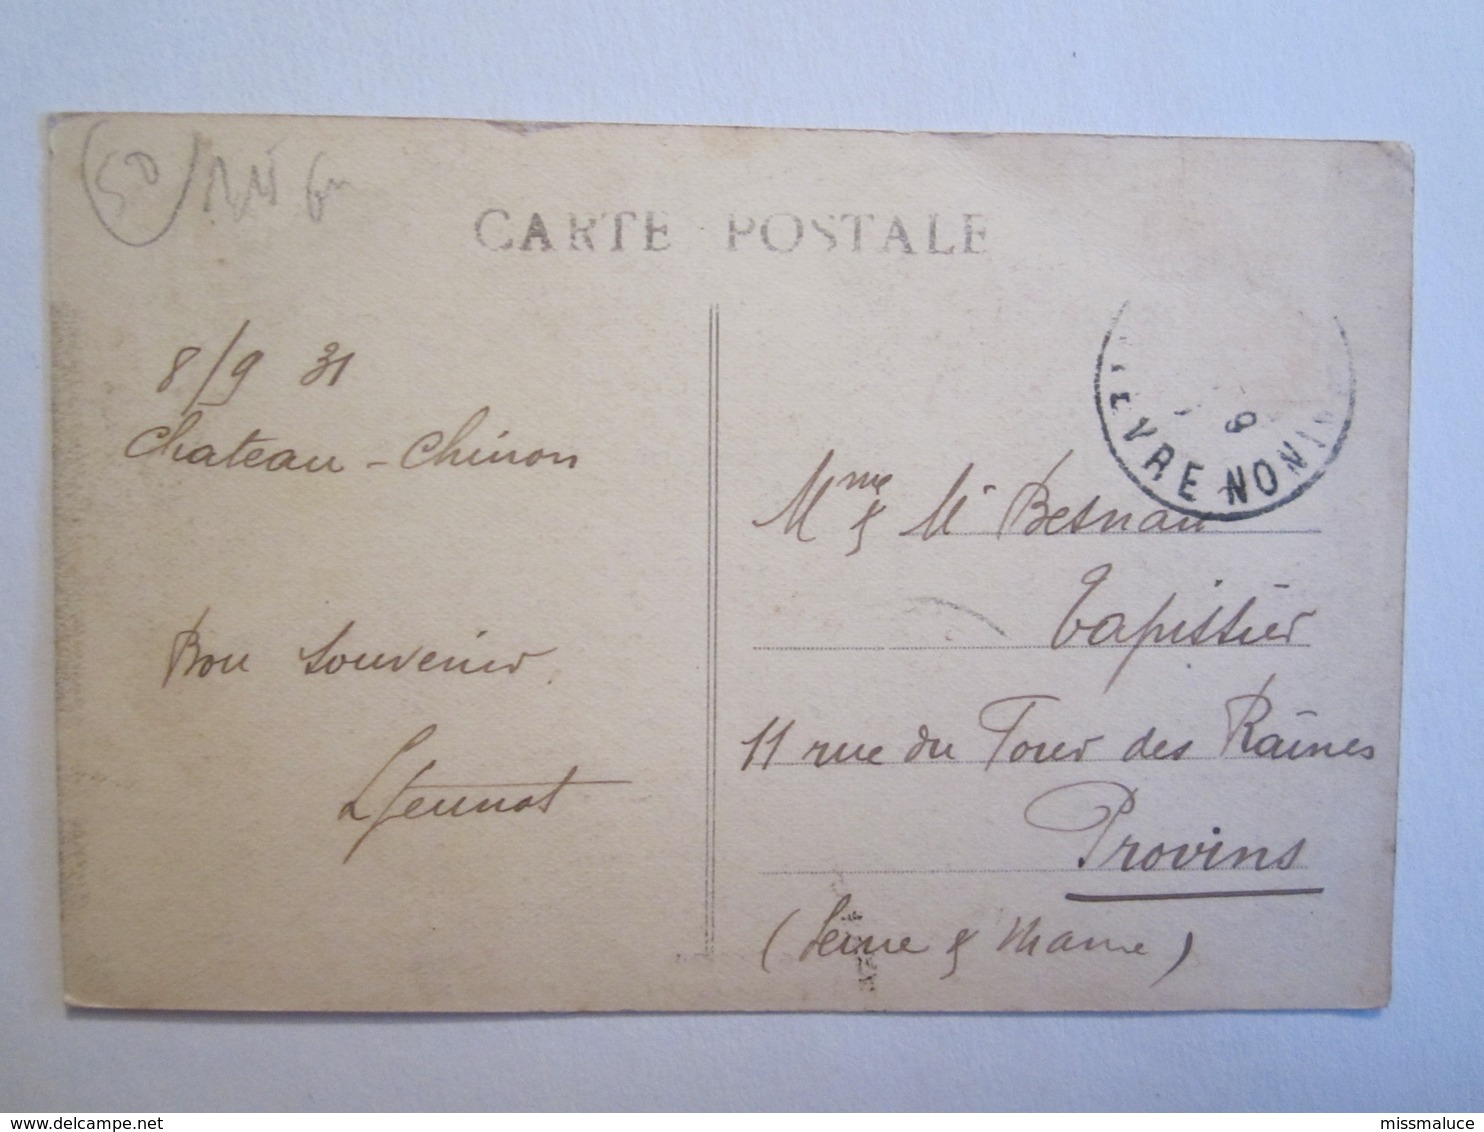 50
CARTE POSTALE
8/9 31
Chateau-Chinon
Bon souvenir
Mme & Mr Besnau
Tapissier
11 rue du Tour des Raines
Provins
(Seine & Marne)
delcampe.net
missmaluce